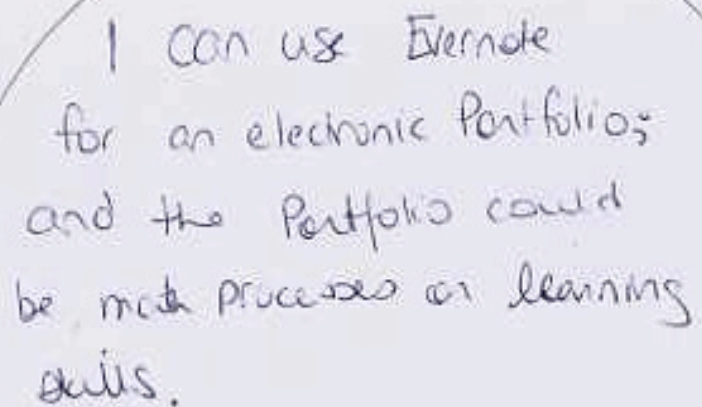 I can use Evernote
for an electronic Portfolio;
and the Portfolio could
be math processes or learning
skills.